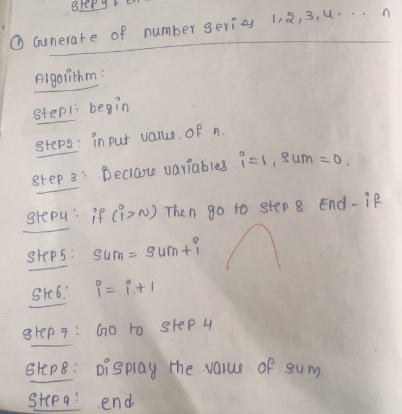 Step
① Generate of number series 1,2,3,4.... n
Algorithm:
Step1: begin
Step2: input value of n.
Step 3: Declare variables i=1, sum=0.
Step4: if (i>N) Then go to step 8 End-if
Step5: sum = sum+i
Ste6: i = i+1
Step 7: Go to step 4
Step8: Display the value of sum
Step9: end